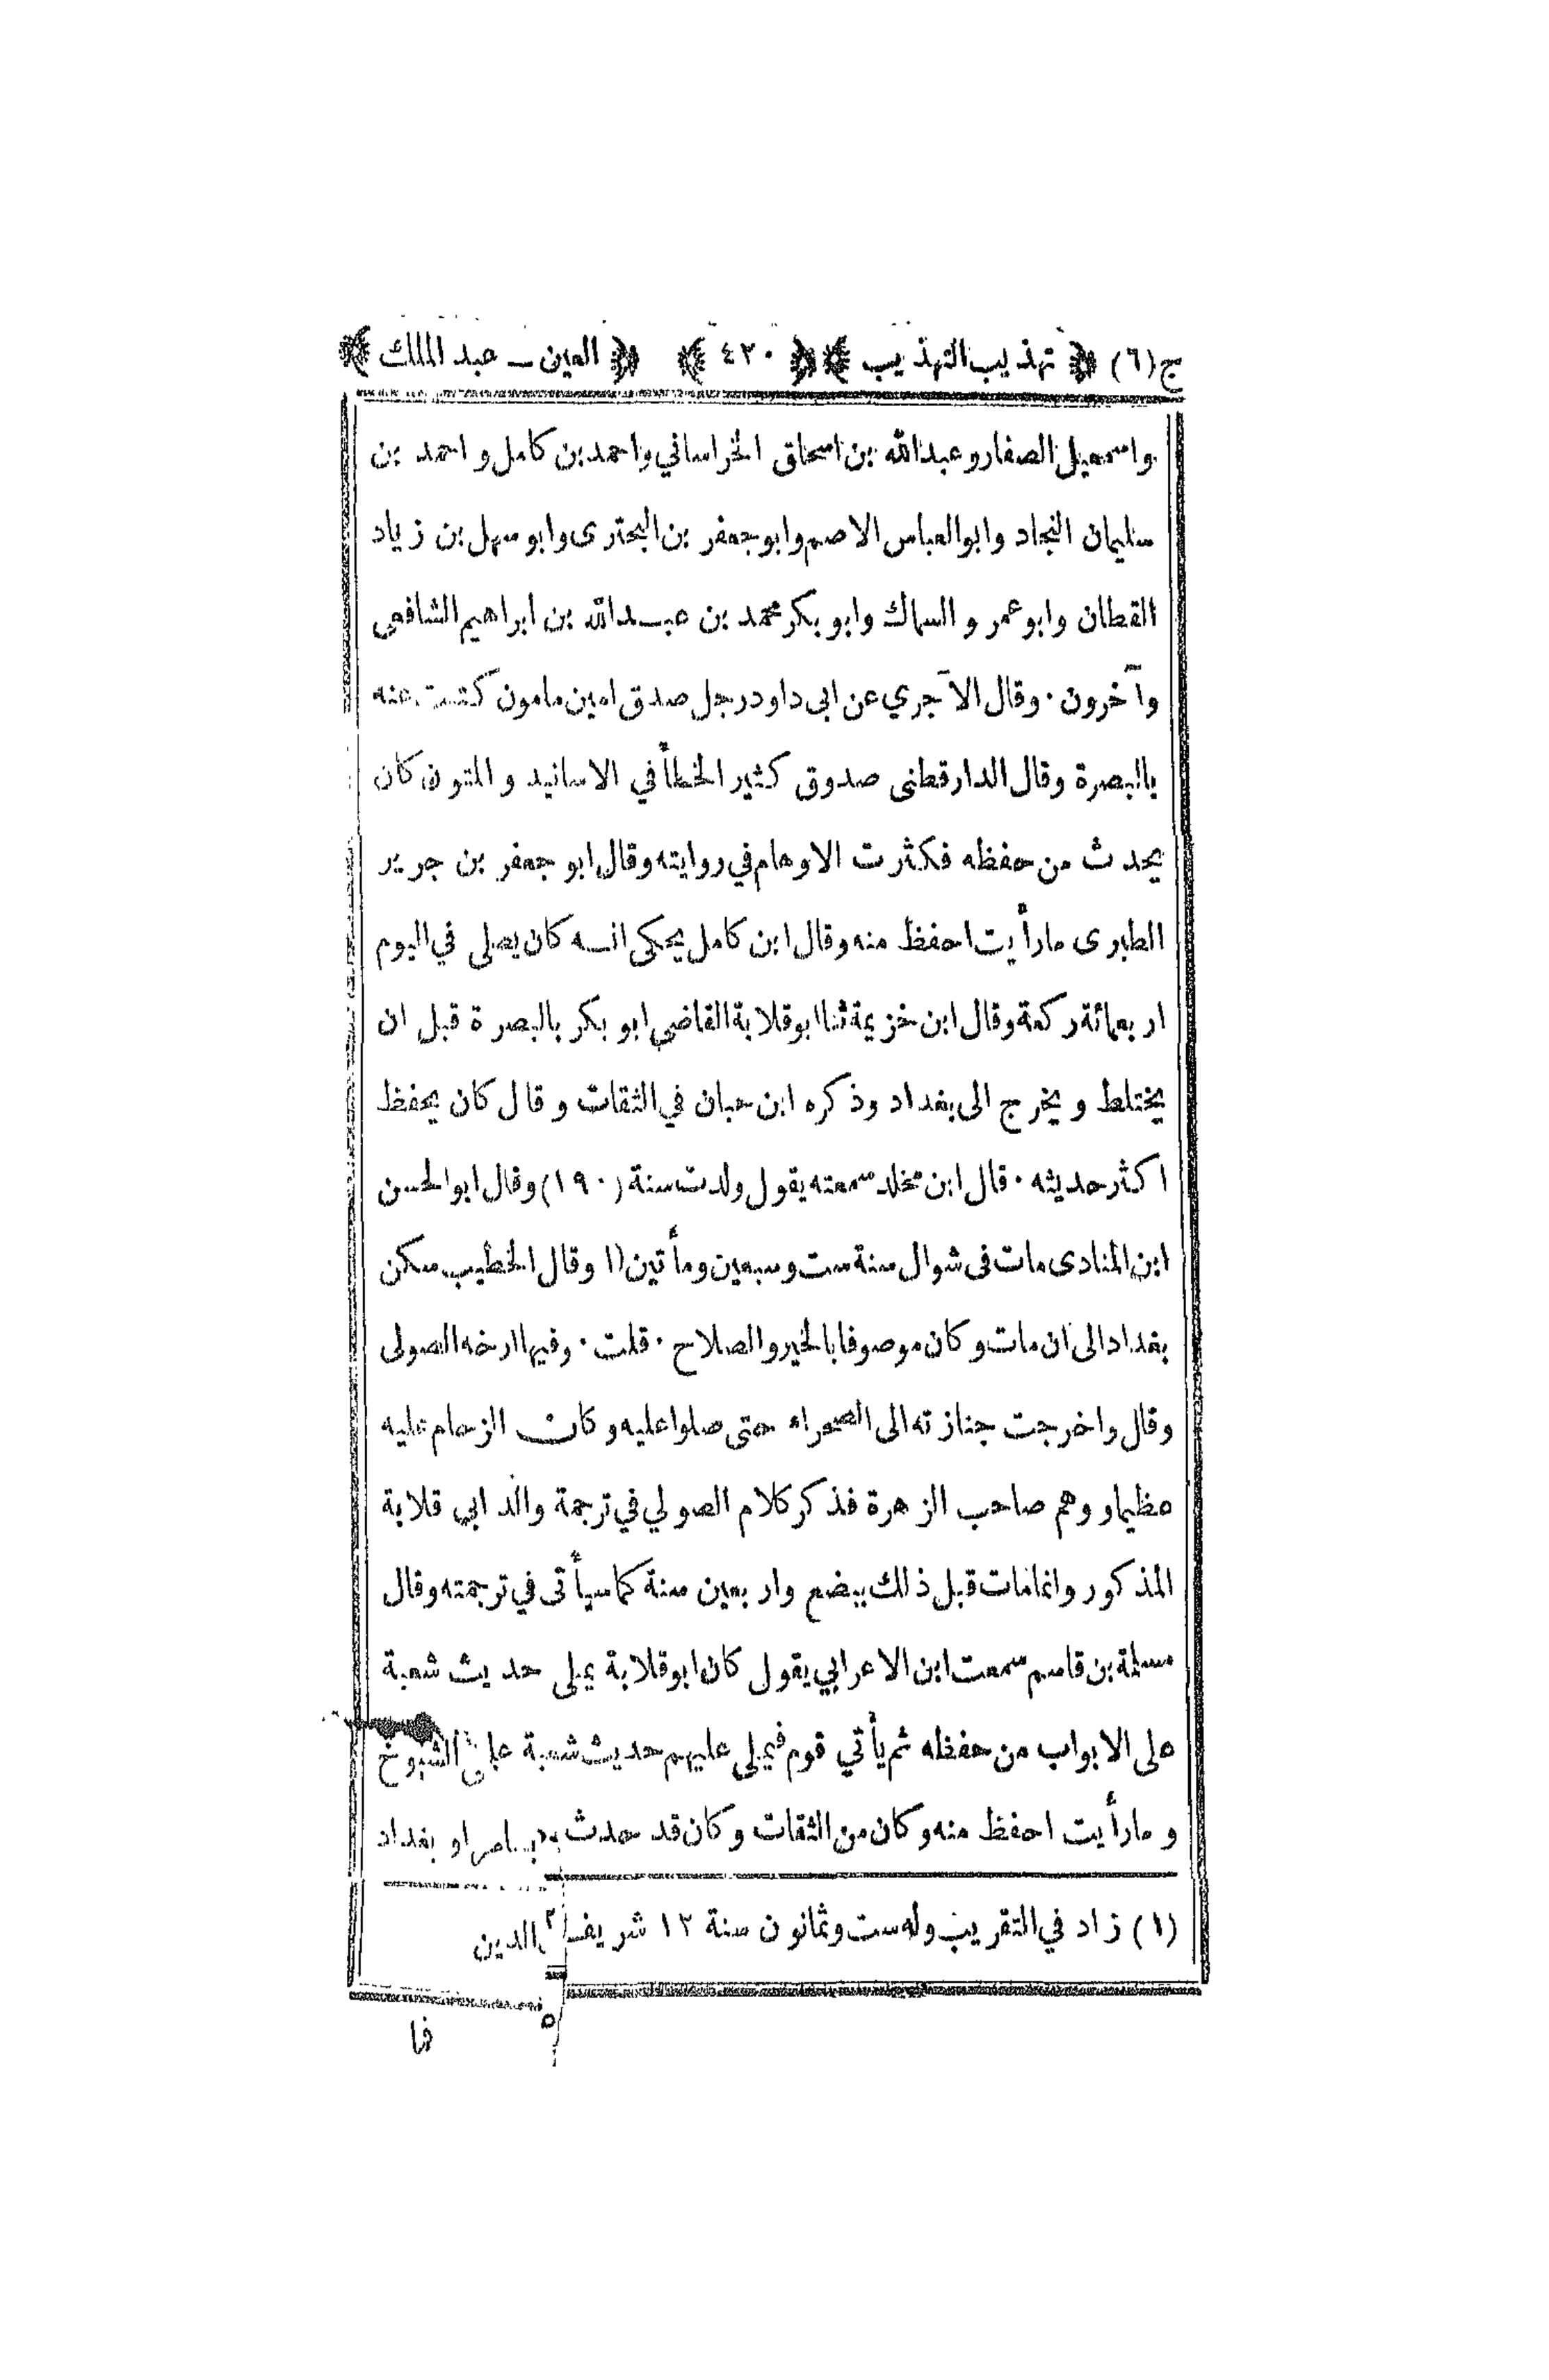 ج(٦) ﴿ تهذيب التهذيب ﴾ ﴿ ٤٢٠ ﴾ ﴿ العين ـ عبد الملك ﴾
واسمعيل الصفار وعبدالله بن اسحاق الخراساني واحمد بن كامل و احمد بن
سليمان النجاد وابوالعباس الاصم وابو جعفر بن البحترى وابو سهل بن زياد
القطان وابو عمر و السماك وابو بكر محمد بن عبدالله بن ابراهيم الشافعى
وآخرون · وقال الآجري عن ابى داود رجل صدق امين مامون كتبت عنه
بالبصرة وقال الدارقطنى صدوق كثير الخطأ في الاسانيد و المتون كان
يحدث من حفظه فكثرت الاوهام في روايته وقال ابو جعفر بن جرير
الطبرى مارأيت احفظ منه وقال ابن كامل يحكى انه كان يصلى في اليوم
اربعمائة ركعة وقال ابن خزيمة ثنا ابو قلابة القاضي ابو بكر بالبصرة قبل ان
يختلط و يخرج الى بغداد وذكره ابن حبان في الثقات و قال كان يحفظ
اكثر حديثه · قال ابن مخلد سمعته يقول ولدت سنة (١٩٠) وقال ابو الحسن
ابن المنادى مات فى شوال سنة ست وسبعين ومأتين(١ وقال الخطيب سكن
بغداد الى ان مات و كان موصوفا بالخير والصلاح · قلت · وفيها ارخه الصولى
وقال واخرجت جنازته الى الصحراء حتى صلوا عليه و كان الزحام عليه
عظيما و وهم صاحب الزهرة فذكر كلام الصولي في ترجمة والد ابي قلابة
المذكور وانما مات قبل ذلك ببضع واربعين سنة كما سيأتى في ترجمته وقال
مسلمة بن قاسم سمعت ابن الاعرابي يقول كان ابو قلابة يملى حديث شعبة
على الابواب من حفظه ثم يأتي قوم فيملى عليهم حديث شعبة على الشيوخ
و مارأيت احفظ منه و كان من الثقات و كان قد حدث بسامرا و بغداد
(١) زاد في التقريب وله ست وثمانون سنة ١٢ شريف الدين
فما